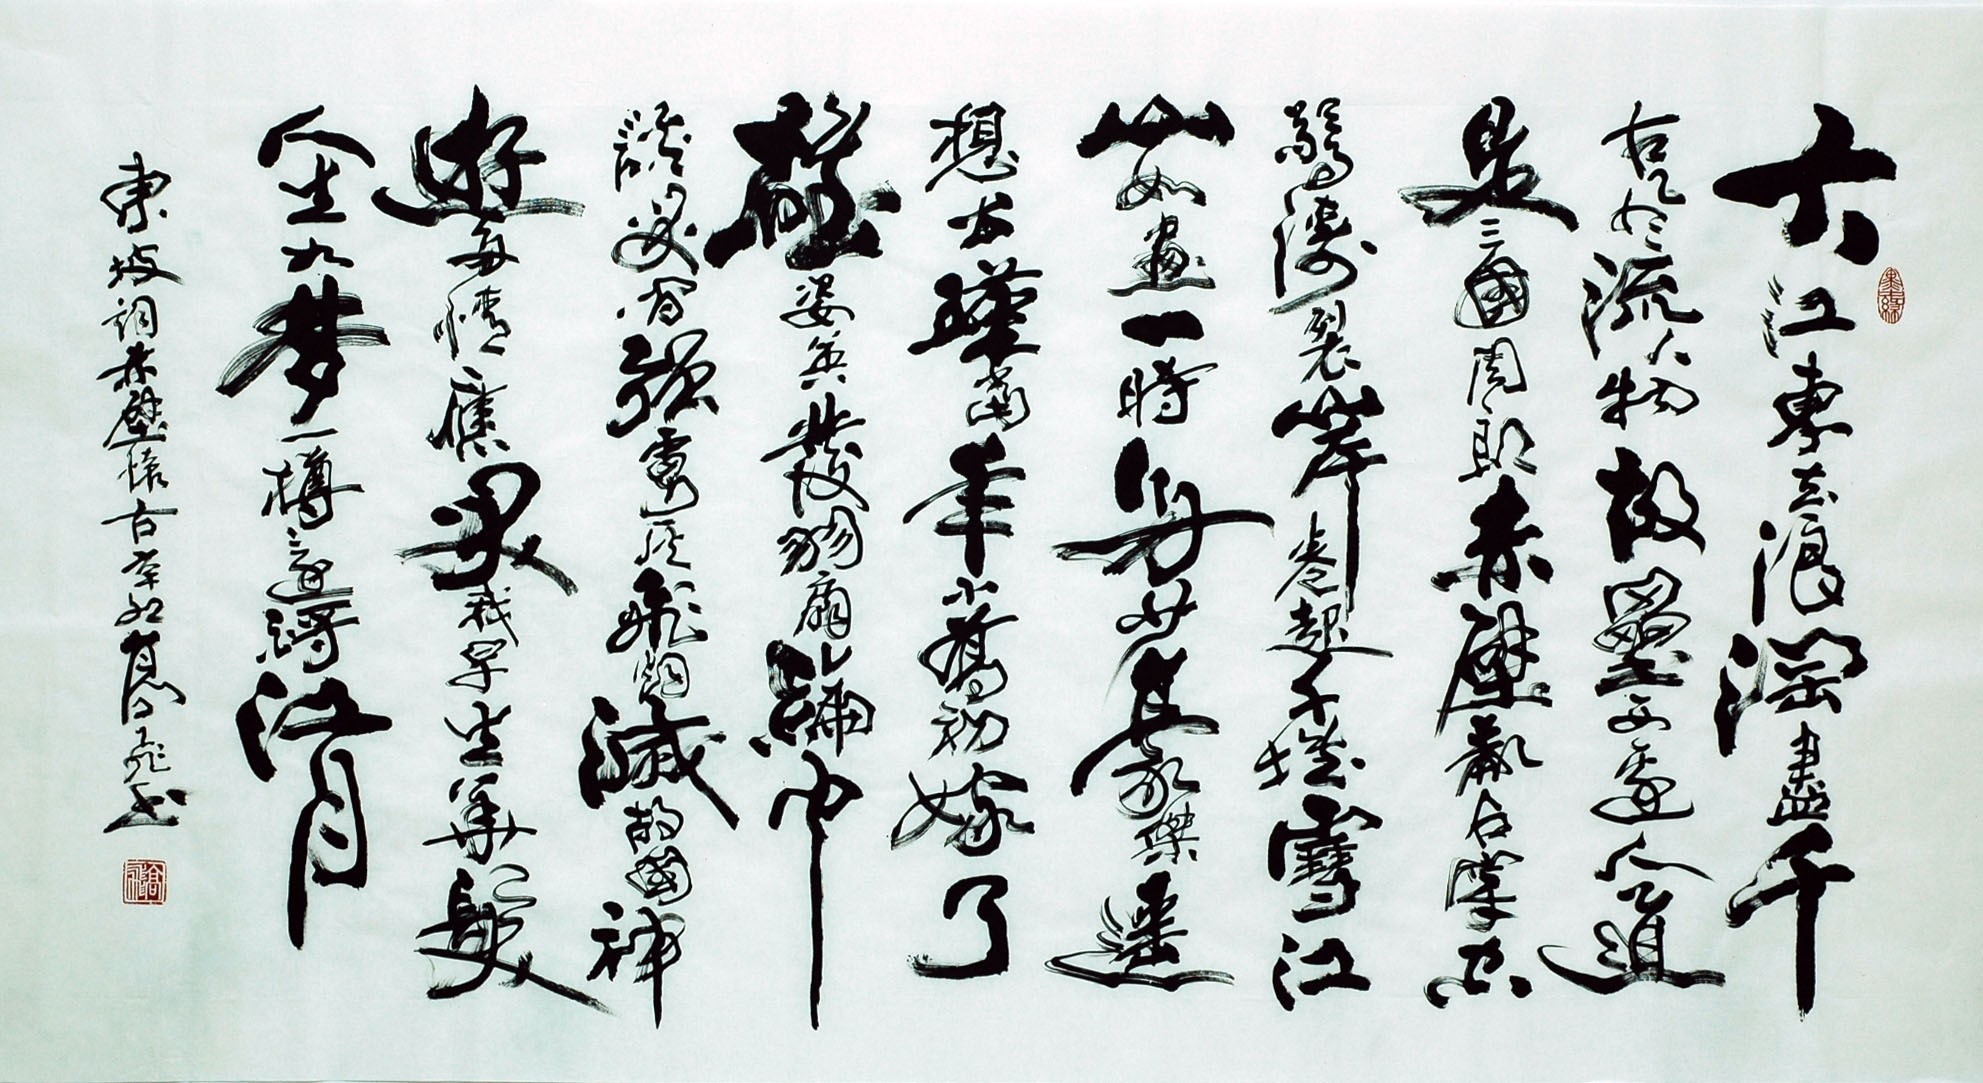 大江東去浪淘盡千
古風流人物故壘西邊人道
是三國周郎赤壁亂石穿空
驚濤裂岸卷起千堆雪江
山如畫一時多少豪傑遙
想公瑾當年小喬初嫁了
雄姿英發羽扇綸巾
談笑間強虜灰飛煙滅故國神
遊多情應笑我早生華髮
人生如夢一樽還酹江月
東坡詞赤壁懷古辛卯高飛书